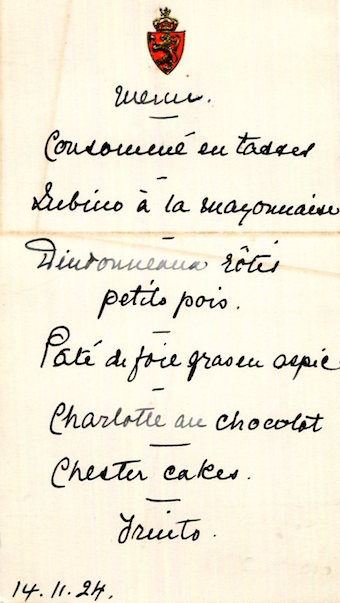 Menu.
Consommé en tasses
à la mayonnaise
Dindonneaux rôtis
petits pois.
Pâté de foie gras en aspic
Charlotte au chocolat
Chester cakes.
14.11.24.